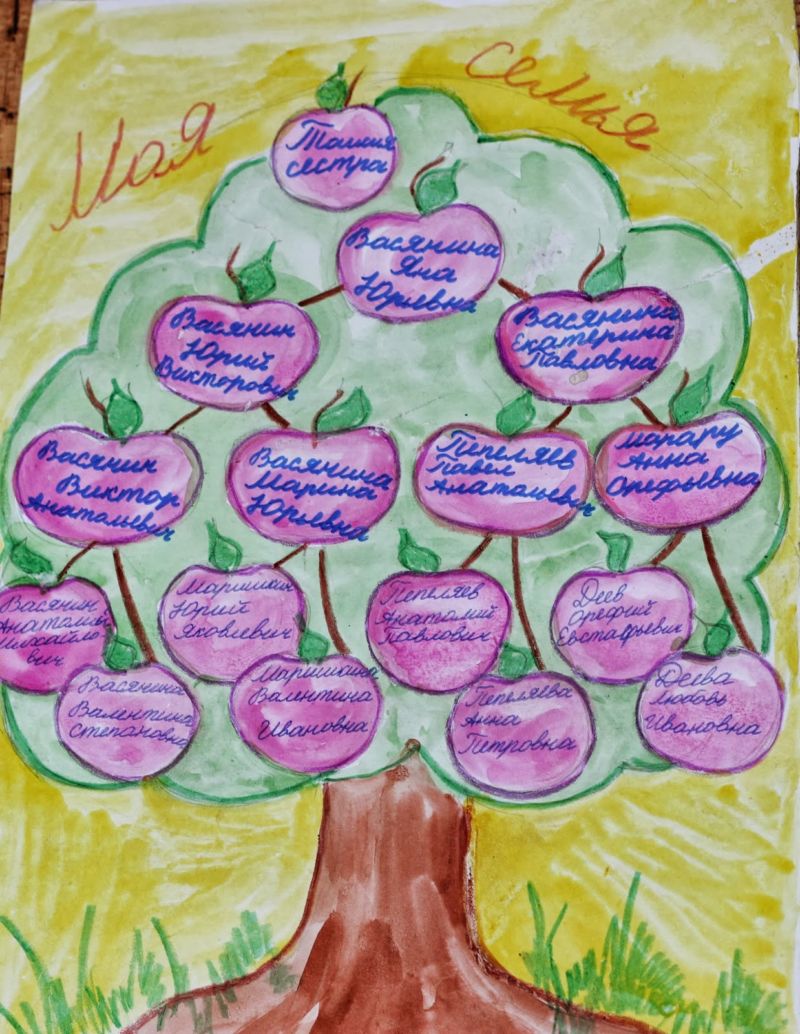 Моя семья
сестра
Васянина
Яна
Юрьевна
Васянин
Юрий
Викторович
Васянина
Екатерина
Павловна
Васянин
Виктор
Анатольевич
Васянина
Марина
Юрьевна
Пепеляев
Павел
Анатольевич
Марару
Анна
Орефьевна
Васянин
Анатолий
Михайло
вич
Маришкин
Юрий
Яковлевич
Пепеляев
Анатолий
Павлович
Деев
Орефий
Евстафьевич
Васянина
Валентина
Степановна
Маришкина
Валентина
Ивановна
Пепеляева
Анна
Петровна
Деева
Любовь
Ивановна